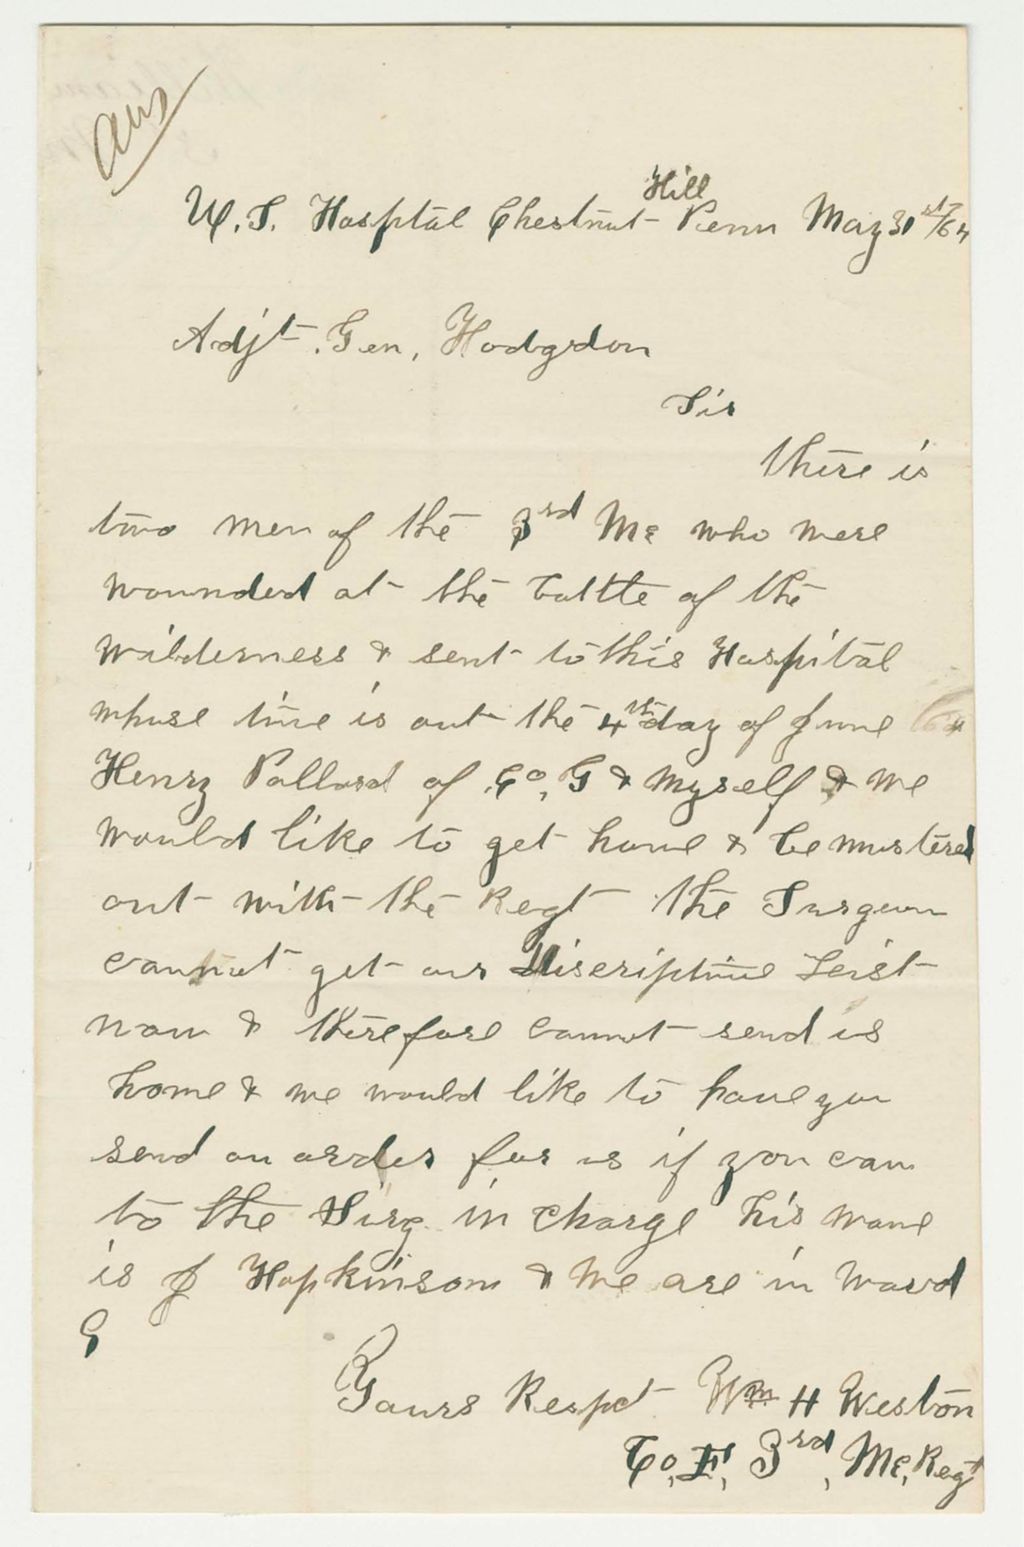 Ans
U.S. Hosptal Chestnut Hill Penn May 31st/64
Adjt. Gen, Hodgdon
Sir
there is
two men of the 3rd Me who were
wounded at the battle of the
wilderness & sent to this Hospital
whose time is out the 4th day of June 64
Henry Pollard of Co, G & myself & we
would like to get home & be mustered
out with the Regt the Surgeon
cannot get our Discriptive Leist
now & therefore cannot send us
home & we would like to have you
send an order for us if you can
to the Surg in charge his name
is J Hopkinson & we are in Ward
G
Yours Respct Wm H Weston
Co, F, 3rd, Me, Regt